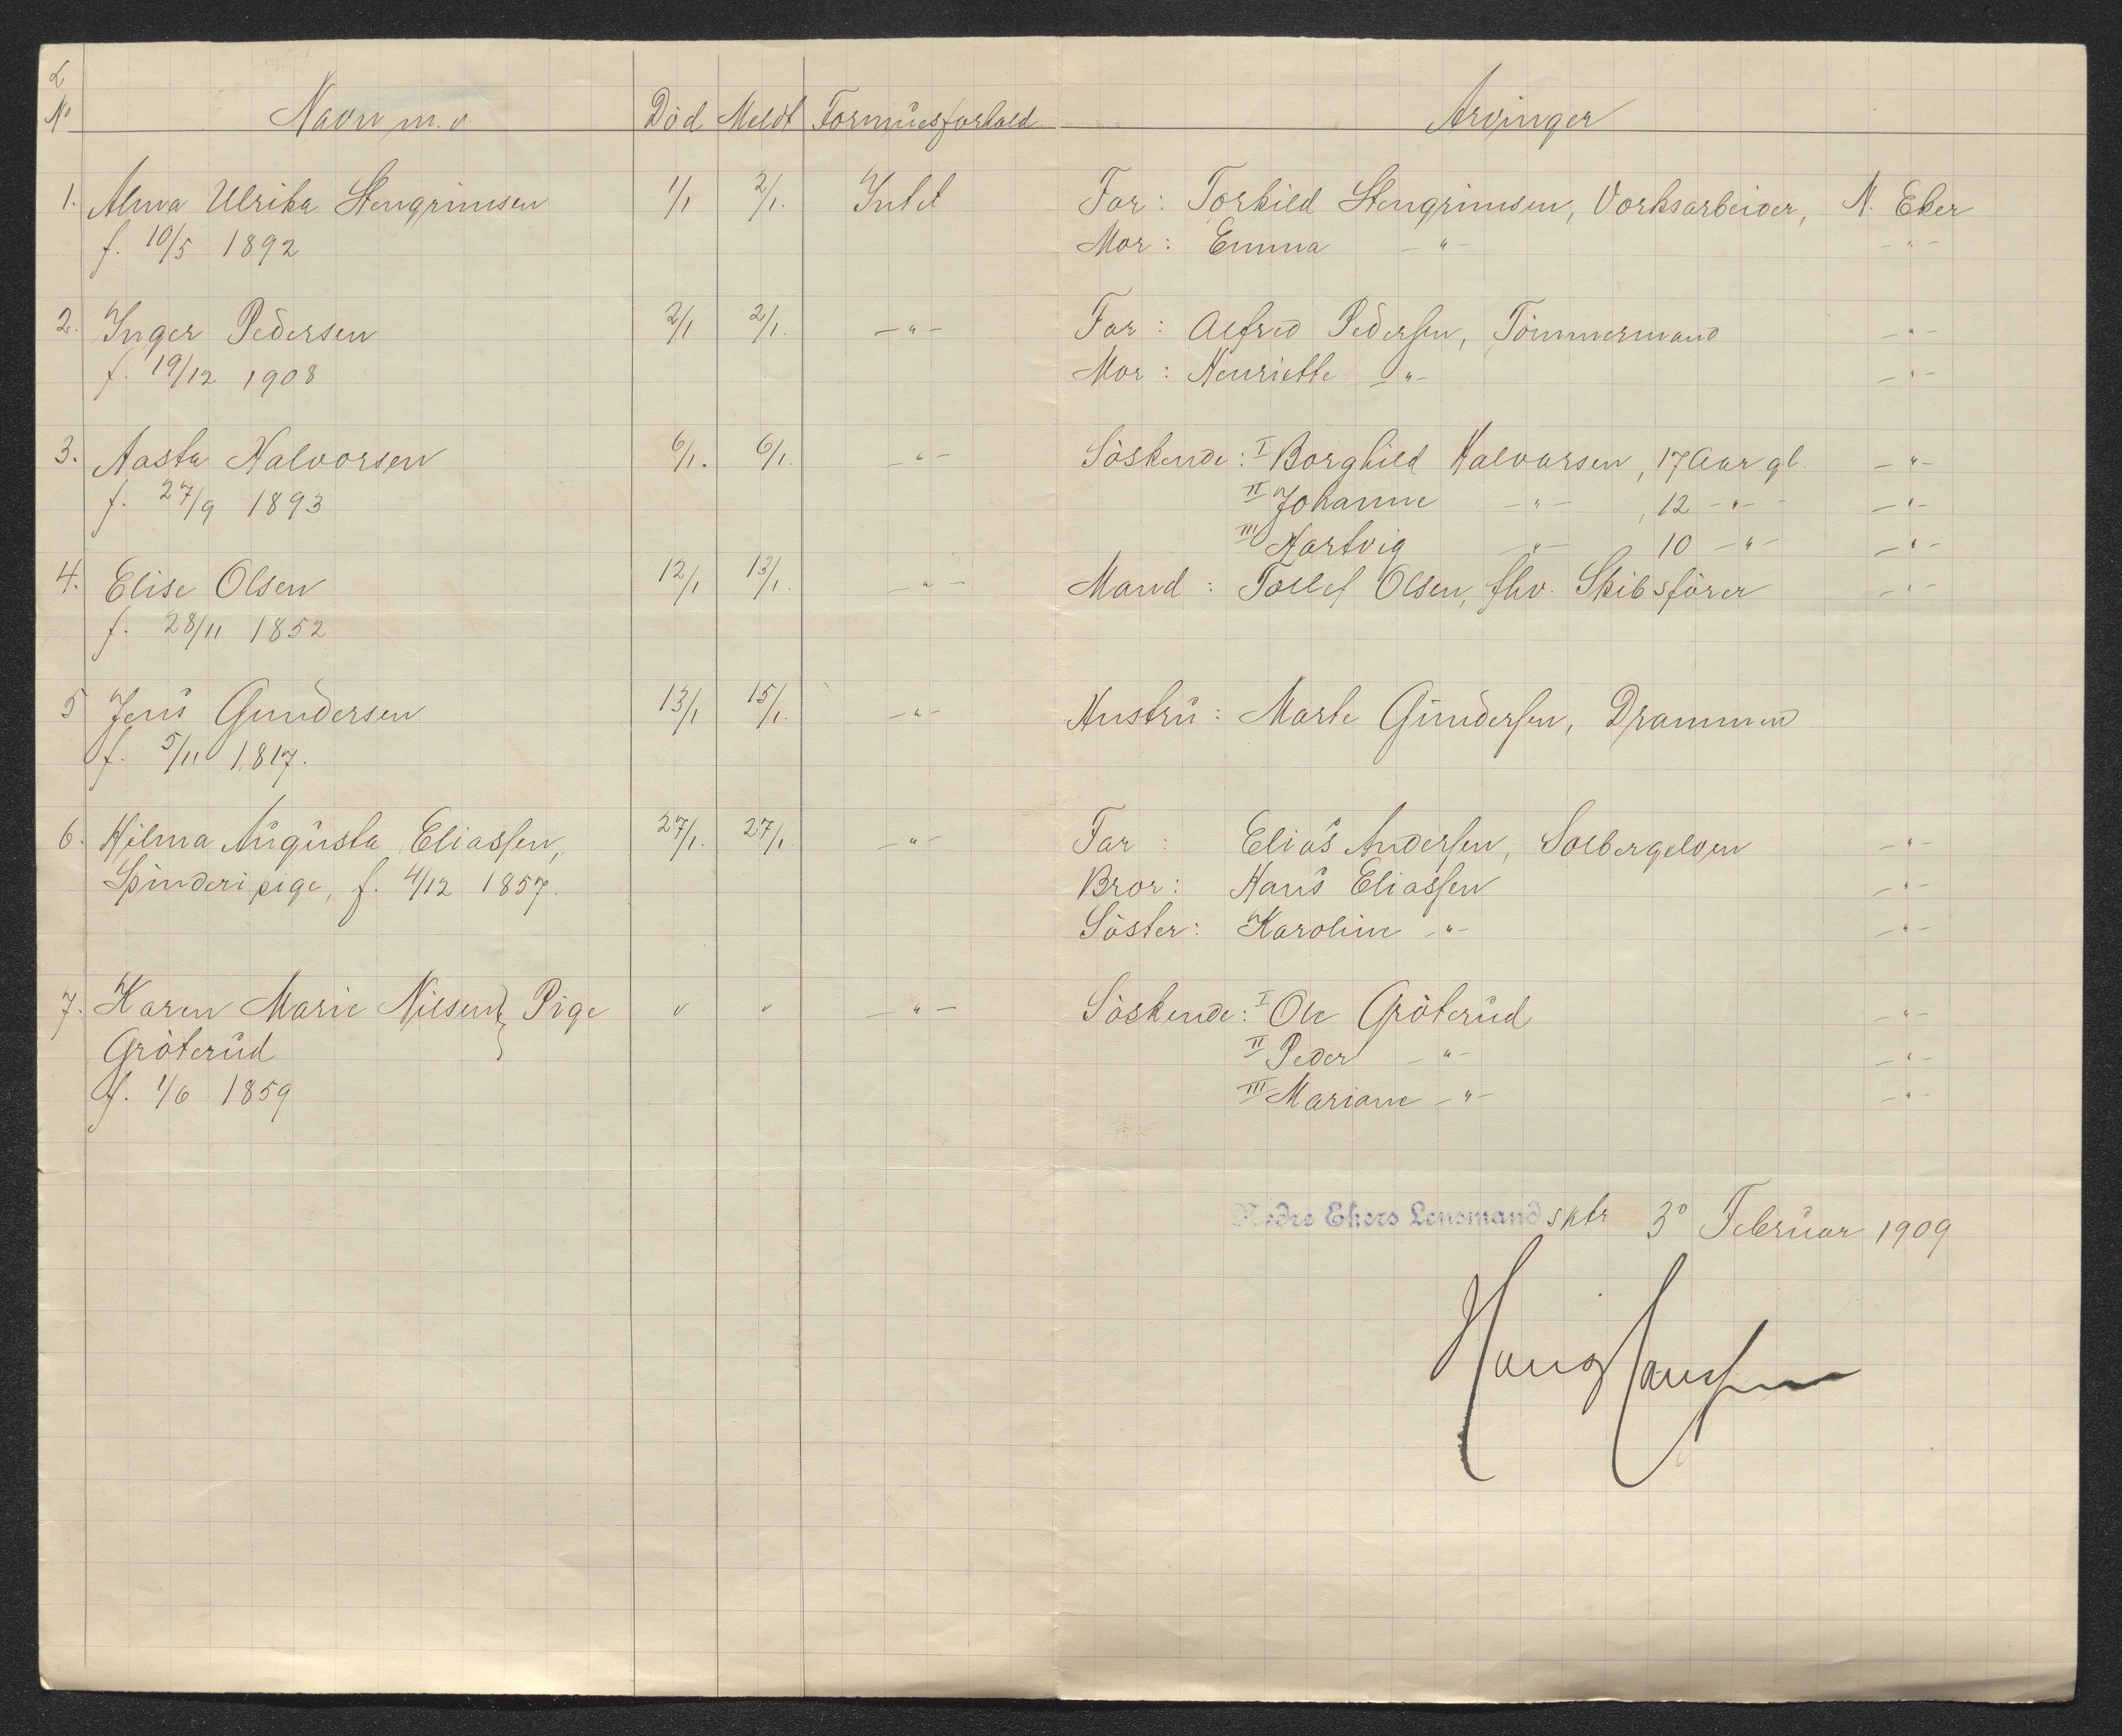 L
No Navn m.v. Död Meldt Formuesforhold Arvinger
1. Alma Ulrika Stengrimsen 1/1 2/1. Intet Far: Torkild Stengrimsen, Vorksarbeider, N. Eker
f. 10/5 1892 Mor: Emma -"- -"-
2. Inger Pedersen 2/1 2/1. -"- Far: Alfred Pedersen, Tömmermand -"-
f. 19/12 1908 Mor: Henriette -"- -"-
3. Aasta Halvorsen 6/1. 6/1. -"- Söskende: I Borghild Halvorsen, 17 Aar gl. -"-
f. 27/9 1893 II Johanne -"- , 12 -"- -"-
III Hartvig -"- 10 -"- -"-
4. Elise Olsen 12/1 13/1. -"- Mand: Tollef Olsen, fhv. Skibsförer -"-
f. 28/11 1852
5 Jens Gundersen 13/1 15/1. -"- Hustru: Marte Gundersen, Drammen
f. 5/11 1817.
6. Hilma Augusta Eliassen, 27/1. 27/1 -"- Far: Elias Andersen, Solbergelven -"-
Spinderipige, f. 4/12 1857. Bror: Hans Eliassen -"-
Söster: Karoline -"- -"-
7. Karen Marie Nilsen } Pige " " -"- Söskende: I Ole Gröterud -"-
Gröterud II Peder -"- -"-
f. 1/6 1859 III Mariane -"- -"-
Nedre Ekers Lensmandsktr 3 Februar 1909